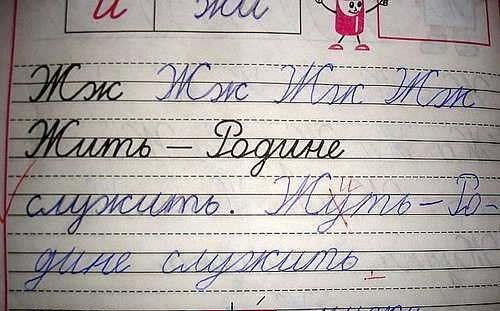 и жи
Жж Жж Жж Жж
Жить – Родине
служить. Жуть – Ро-
дине служить